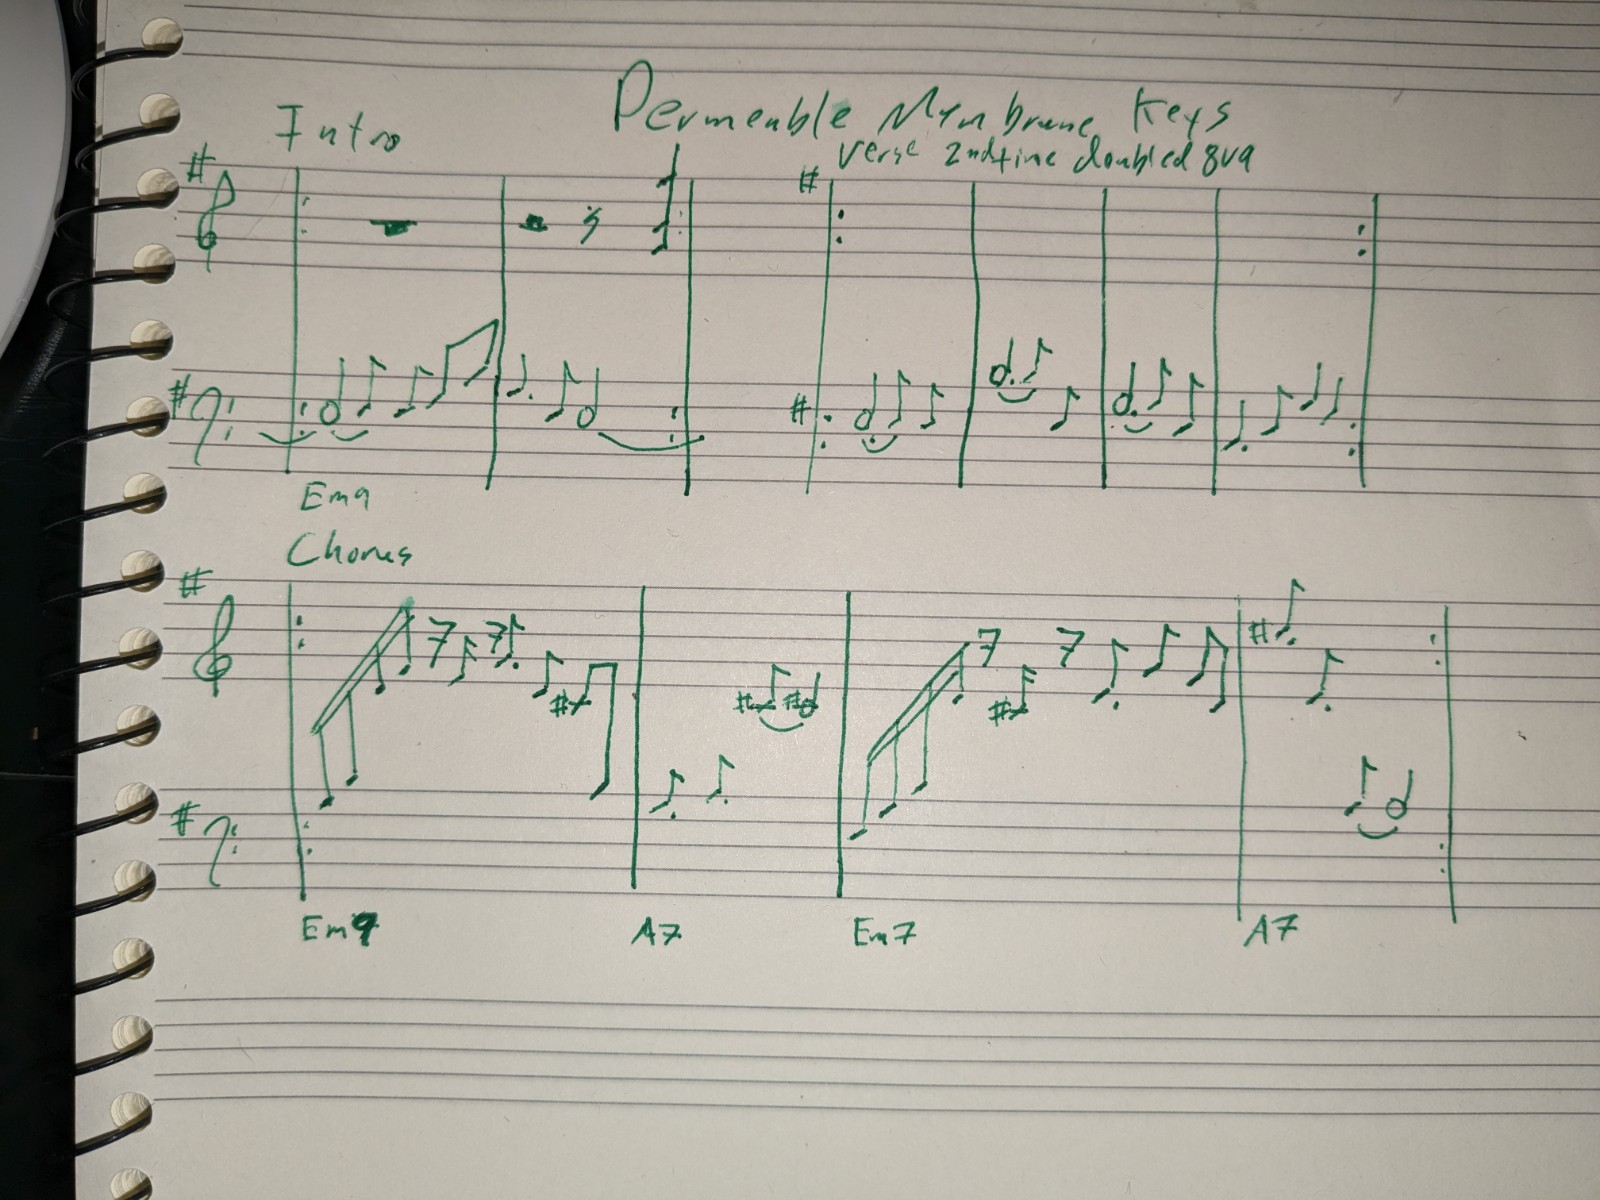 Permeable Membrane Keys
Intro
Verse 2nd time doubled 8va
Em9
Chorus
Em9 A7 Em7 A7